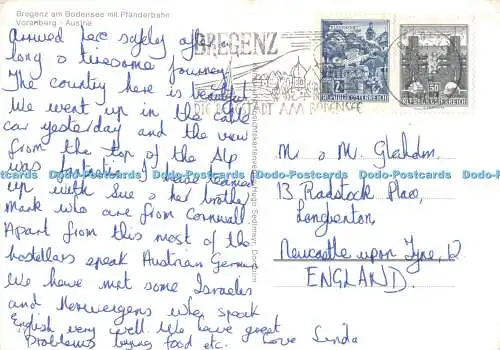 Bregenz am Bodensee mit Pfänderbahn
Vorarlberg - Austria
Arrived here safely after
long & tiresome journey.
The country here is beautiful
We went up in the cable
car yesterday and the view
from the top of the Alp
was fantastic. I have teamed
up with Sue & her brother
Mark who are from Cornwall
Apart from this most of the
hostellers speak Austrian German
We have met some Israelis
and Norwegians who speak
English very well. We have great
problems buying food etc. Love Linda
BREGENZ
DIE FESTSTADT AM BODENSEE
REPUBLIK ÖSTERREICH
REPUBLIK ÖSTERREICH
Mr & M. Gleholm.
13 Radstock Place,
Longbenton
Newcastle upon Tyne, 12
ENGLAND.
Dodo-Postcards Dodo-Postcards Dodo-Postcards Dodo-Postcards